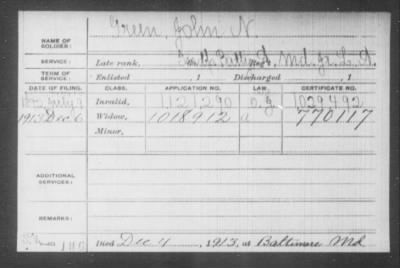 Green, John N.
NAME OF SOLDIER:
SERVICE: Late rank, Batty Md. Lt. A.
TERM OF SERVICE: Enlisted , 1 Discharged , 1
DATE OF FILING. CLASS. APPLICATION NO. LAW. CERTIFICATE NO.
July Invalid, 1121290 1029492
1913 Dec 6 Widow, 1018912 770117
Minor,
ADDITIONAL SERVICES:
REMARKS:
Died Dec 4, 1913, at Baltimore Md